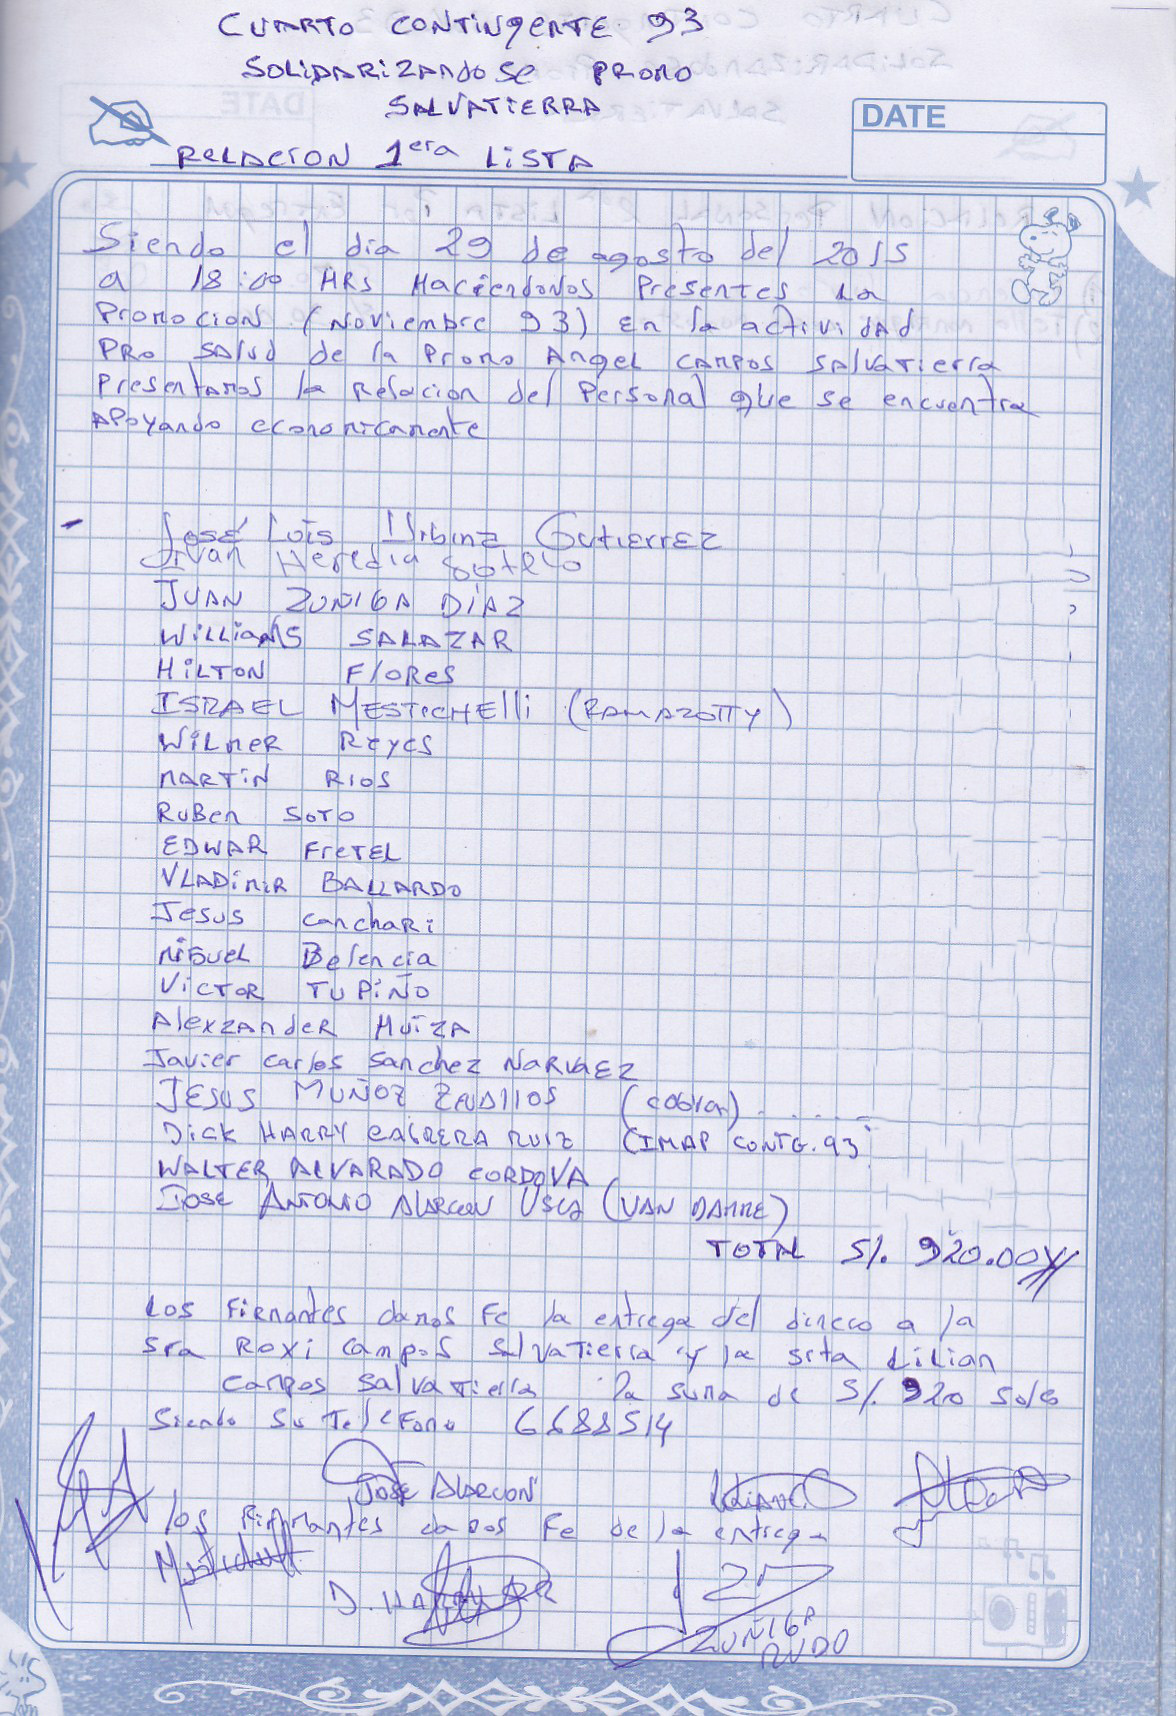 CUARTO CONTINGENTE 93
SOLIDARIZANDOSE PROMO
SALVATIERRA
DATE
RELACION 1era LISTA
Siendo el dia 29 de agosto del 2015
a 18:00 HRS Haciendonos Presentes La
Promocion (Noviembre 93) En la actividad
PRO Salud de la Promo Angel CAMPOS SALVATIERRA
Presentamos la Relacion del Personal que se encuentra
APOYANDO economicamente
- José Luis Urbina GUTIERREZ
Ivan Heredia Sotelo
JUAN ZUÑIGA DÍAZ
WILLIAMS SALAZAR
HILTON FLORES
ISRAEL MESTICHELLI (RAMAZOTTY)
WILMER REYES
MARTIN RIOS
RUBEN SOTO
EDWAR FRETEL
VLADIMIR BALLARDO
JESUS CANCHARI
MIGUEL Belencia
VICTOR TUPIÑO
AlexZANDER HUIZA
Javier Carlos Sanchez NARVAEZ
JESUS MUÑOZ (cobra)
DICK HARRY CABRERA RUIZ (IMAP CONTG. 93
WALTER ALVARADO CORDOVA
JOSE ANTONIO ALARCON (VAN DAMME)
TOTAL S/. 920.00
LOS FIRMANTES damos Fe la entrega del dinero a la
Sra ROXI Campos SalvaTierra y la srta LILIAN
Campos SalvaTierra la suma de S/. 920 soles
Siendo su TeleFono 6688514
JOSE ALARCON
los Firmantes damos Fe de la entrega
D. HARRY
ZUÑIGA
RUDO